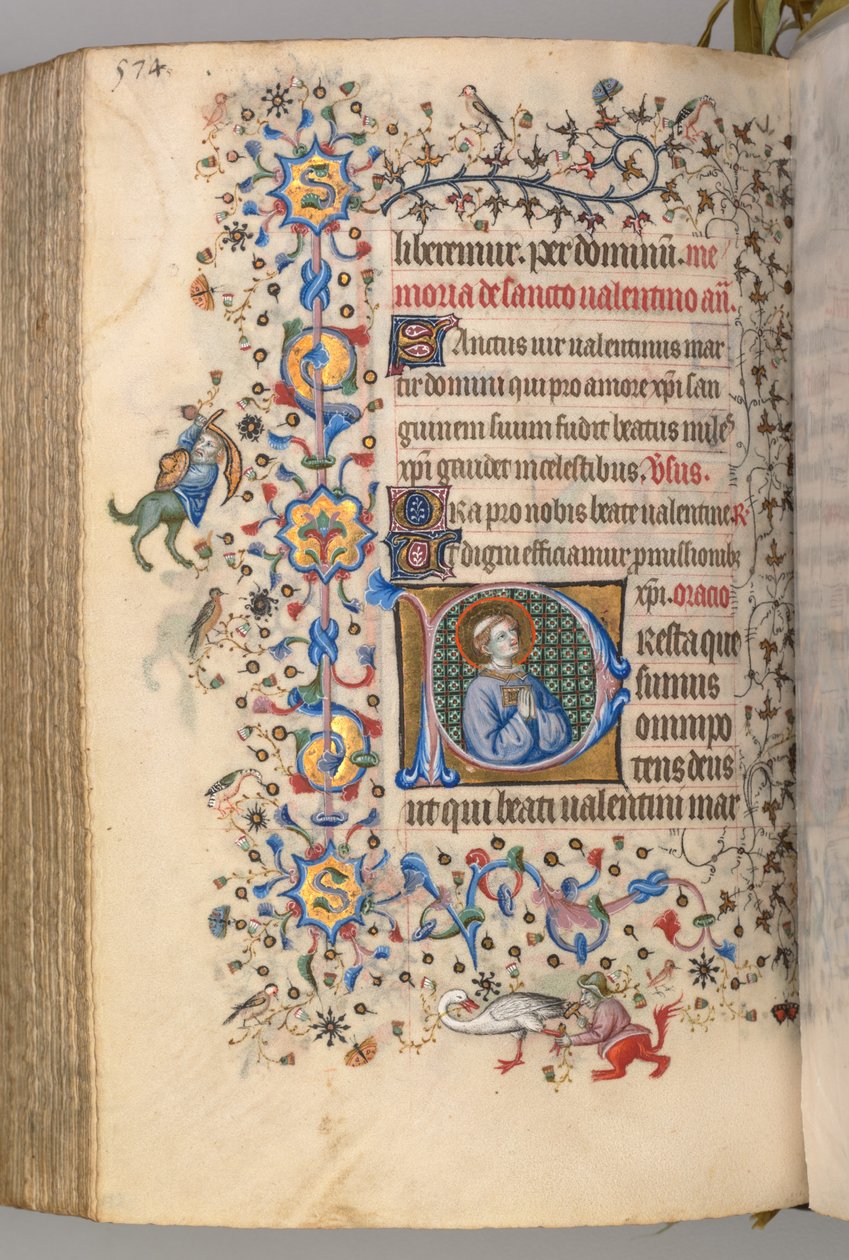 574.
S
liberemur. per dominū. me
moria de sancto ualentino añ.
Sanctus uir ualentinus mar
tir domini qui pro amore xp̄i san
guinem suum fudit beatus miles
xp̄i gaudet in celestibus. V̄sus.
Ora pro nobis beate ualentine. R.
Ut digni efficiamur ꝓmissionibꝫ
xp̄i. oracio
Presta que
sumus
omnipo
tens deus
ut qui beati ualentini mar
S